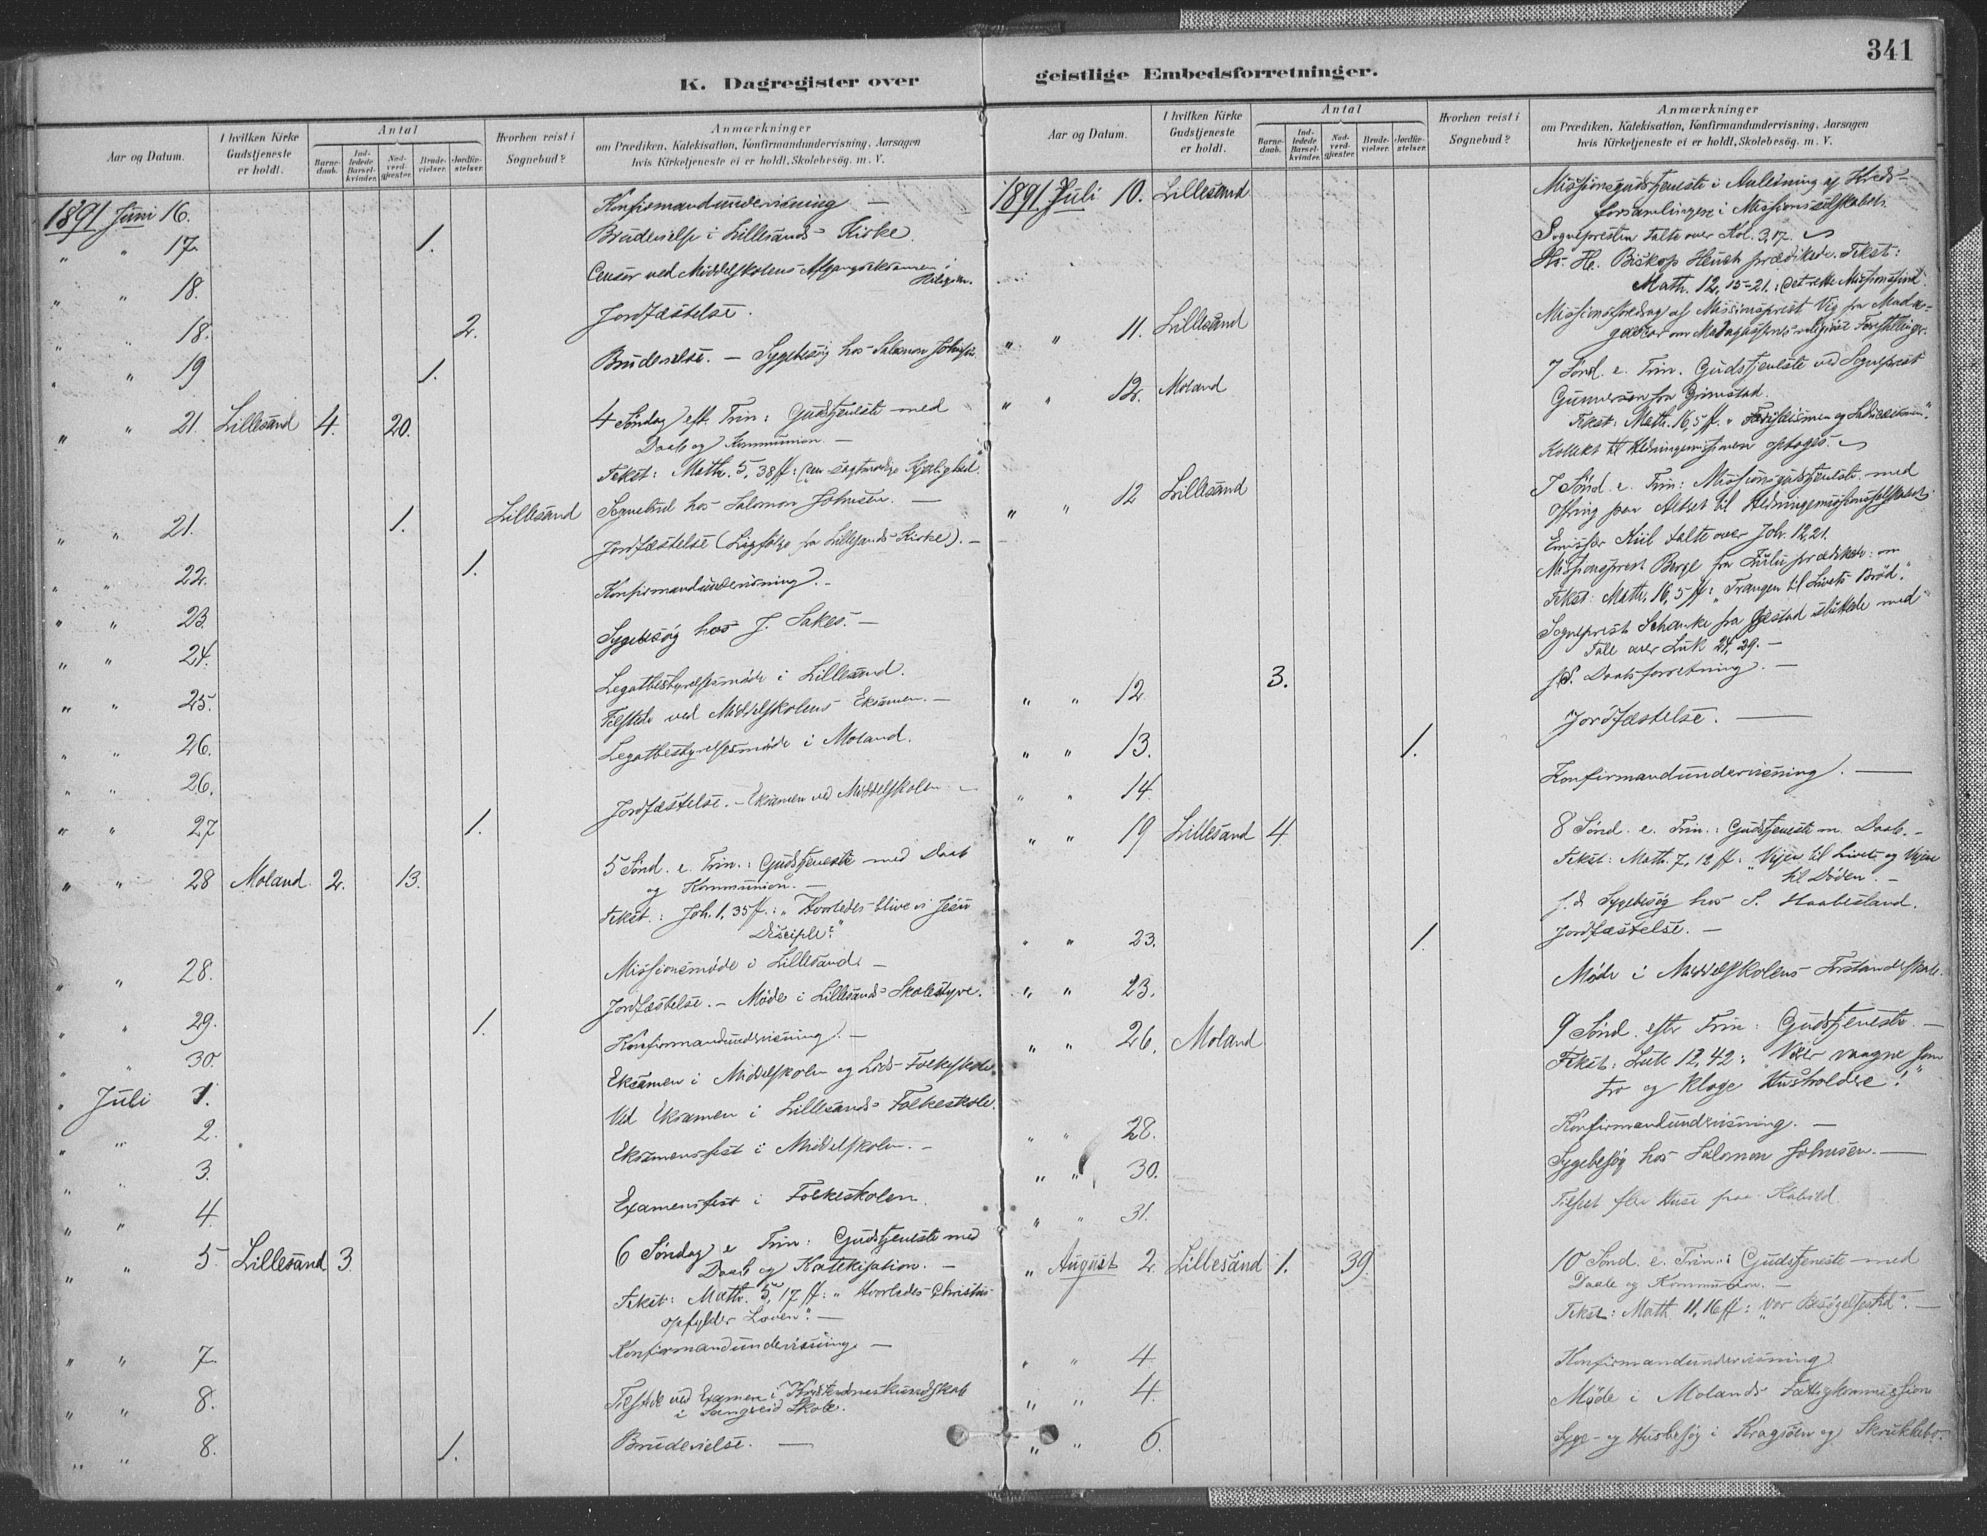 341
K. Dagregister over geistlige Embedsforretninger.
Aar og Datum. | I hvilken Kirke Gudstjeneste er holdt. | Antal | Barnedaab. | Indledede Barselkvinder. | Nadverdgjester. | Brudevielser. | Jordfæstelser. | Hvorhen reist i Sognebud? | Anmærkninger om Prædiken, Katekisation, Konfirmandundervisning, Aarsagen hvis Kirketjeneste ei er holdt, Skolebesøg. m. V.
1891 Juni 16. Konfirmandundervisning —
" " 17. 1. Brudevielse i Lillesands Kirke.
" " 18. Censor ved Middelskolens Afgangseksamen i
Religion.
" " 18. 2. Jordfæstelse.
" " 19 1. Brudevielse. — Sygebesøg hos Salomon Johnsen.
" " 21. Lillesand 4. 20. 4 Søndag eft. Trin: Gudstjeneste med
Daab og Kommunion. —
Tekst: Math. 5, 38 ff: Den sagtmodige Kjærlighed
" " 21. 1. Lillesand Sognebud hos Salomon Johnsen. —
" " 22. 1. Jordfæstelse (Ligfølge fra Lillesands Kirke). —
" " 23. Konfirmandundervisning. —
" " 24. Sygebesøg hos J. Sakes. —
" " 25. Legatbestyrelsesmøde i Lillesand.
" " 26. Tilstede ved Middelskolens Eksamen. —
" " 26. Legatbestyrelsesmøde i Moland.
" " 27 1. Jordfæstelse. — Eksamen ved Middelskolen —
" " 28 Moland 2. 13. 5 Sønd. e. Trin.: Gudstjeneste med Daab
og Kommunion. —
Tekst: Joh. 1, 35 ff.: "Hvorledes blive vi Jesu
Disciple?"
" " 28. Missionsmøde i Lillesand. —
" " 29. 1. Jordfæstelse. — Møde i Lillesands Skolestyre.
" " 30. Konfirmandundervisning. —
" Juli 1. Eksamen i Middelskolen og Folkeskole
" " 2. Ved Eksamen i Lillesands Folkeskole.
" " 3. Eksamensfest i Middelskolen. —
" " 4. Examensfest i Folkeskolen.
" " 5 Lillesand 3. 6 Søndag e Trin: Gudstjeneste med
Daab og Katekisation. —
Tekst: Math. 5, 17 ff: "Hvorledes Christus
opfylder Loven". —
" " 7. Konfirmandundervisning —
" " 8. Tilstede ved Examen i Kristendomskundskab
i Skole.
" " 8. 1. Brudevielse. —
Aar og Datum. | I hvilken Kirke Gudstjeneste er holdt. | Antal | Barnedaab. | Indledede Barselkvinder. | Nadverdgjester. | Brudevielser. | Jordfæstelser. | Hvorhen reist i Sognebud? | Anmærkninger om Prædiken, Katekisation, Konfirmandundervisning, Aarsagen hvis Kirketjeneste ei er holdt, Skolebesøg. m. V.
1891 Juli 10. Lillesand Missionsgudstjeneste i Anledning af Kreds-
forsamlingen i Missionsselskabet.
Sognepresten talte over Kol. 3,17.
Hr. Biskop Heuch prædikede. Tekst:
Math. 12, 15-21: Det rette Missionssind.
" " 11. Lillesand Missionsforedrag af Missionsprest Vig fra Mada-
gaskar om Madagassernes religiøse Forestillinger.
" " 12. Moland 7 Sønd. e. Trin. Gudstjeneste ved Sogneprest
Gunnersen fra Grimstad.
Tekst: Math. 16, 5 ff. "Farisæismen og Sadducæismen".
Kollekt til Hedningemissionen optoges.
" " 12 Lillesand 7 Sønd. e. Trin: Missionsgudstjeneste med
Ofring paa Altret til Hedningemissionsselskabet.
Emissær Kiil talte over Joh. 12, 21.
Missionsprest Berge fra Zulu prædikede om
Tekst: Math. 16, 5 ff: "Trangen til Livets Brød".
Sogneprest Schanke fra Gjestad sluttede med
Tale over Luk 24, 29. —
" " 12 3. Daabsforretning. —
" " 13. 1. Jordfæstelse. —
" " 14 Konfirmandundervisning. —
" " 19 Lillesand 4. 8 Sønd. e. Trin.: Gudstjeneste m. Daab. —
Tekst: Math. 7, 12 ff: "Vejen til Livet og Vejen
til Døden. —
s. d. Sygebesøg hos S. Haabesland.
" " 23. 1. Jordfæstelse. —
" " 23. Møde i Middelskolens Forstanderskab.
" " 26. Moland 9 Sønd. efter Trin: Gudstjeneste. —
Tekst: Luk 12, 42: "Vær vaagne som
tro og kloge Husholdere!"
" " 28. Konfirmandundervisning. —
" " 30. Sygebesøg hos Salomon Johnsen. —
" " 31. Tilset fler Huse paa
" August 2. Lillesand 1. 39. 10 Sønd. e. Trin: Gudstjeneste med
Daab og Kommunion. —
Tekst: Math 11, 16 ff: "Vor Besøgelsestid". —
" " 4 Konfirmandundervisning
" " 4. Møde i Molands Fattigkommission
" " 6. Syge- og Husbesøg i Kragsøen og Skrukkebo.